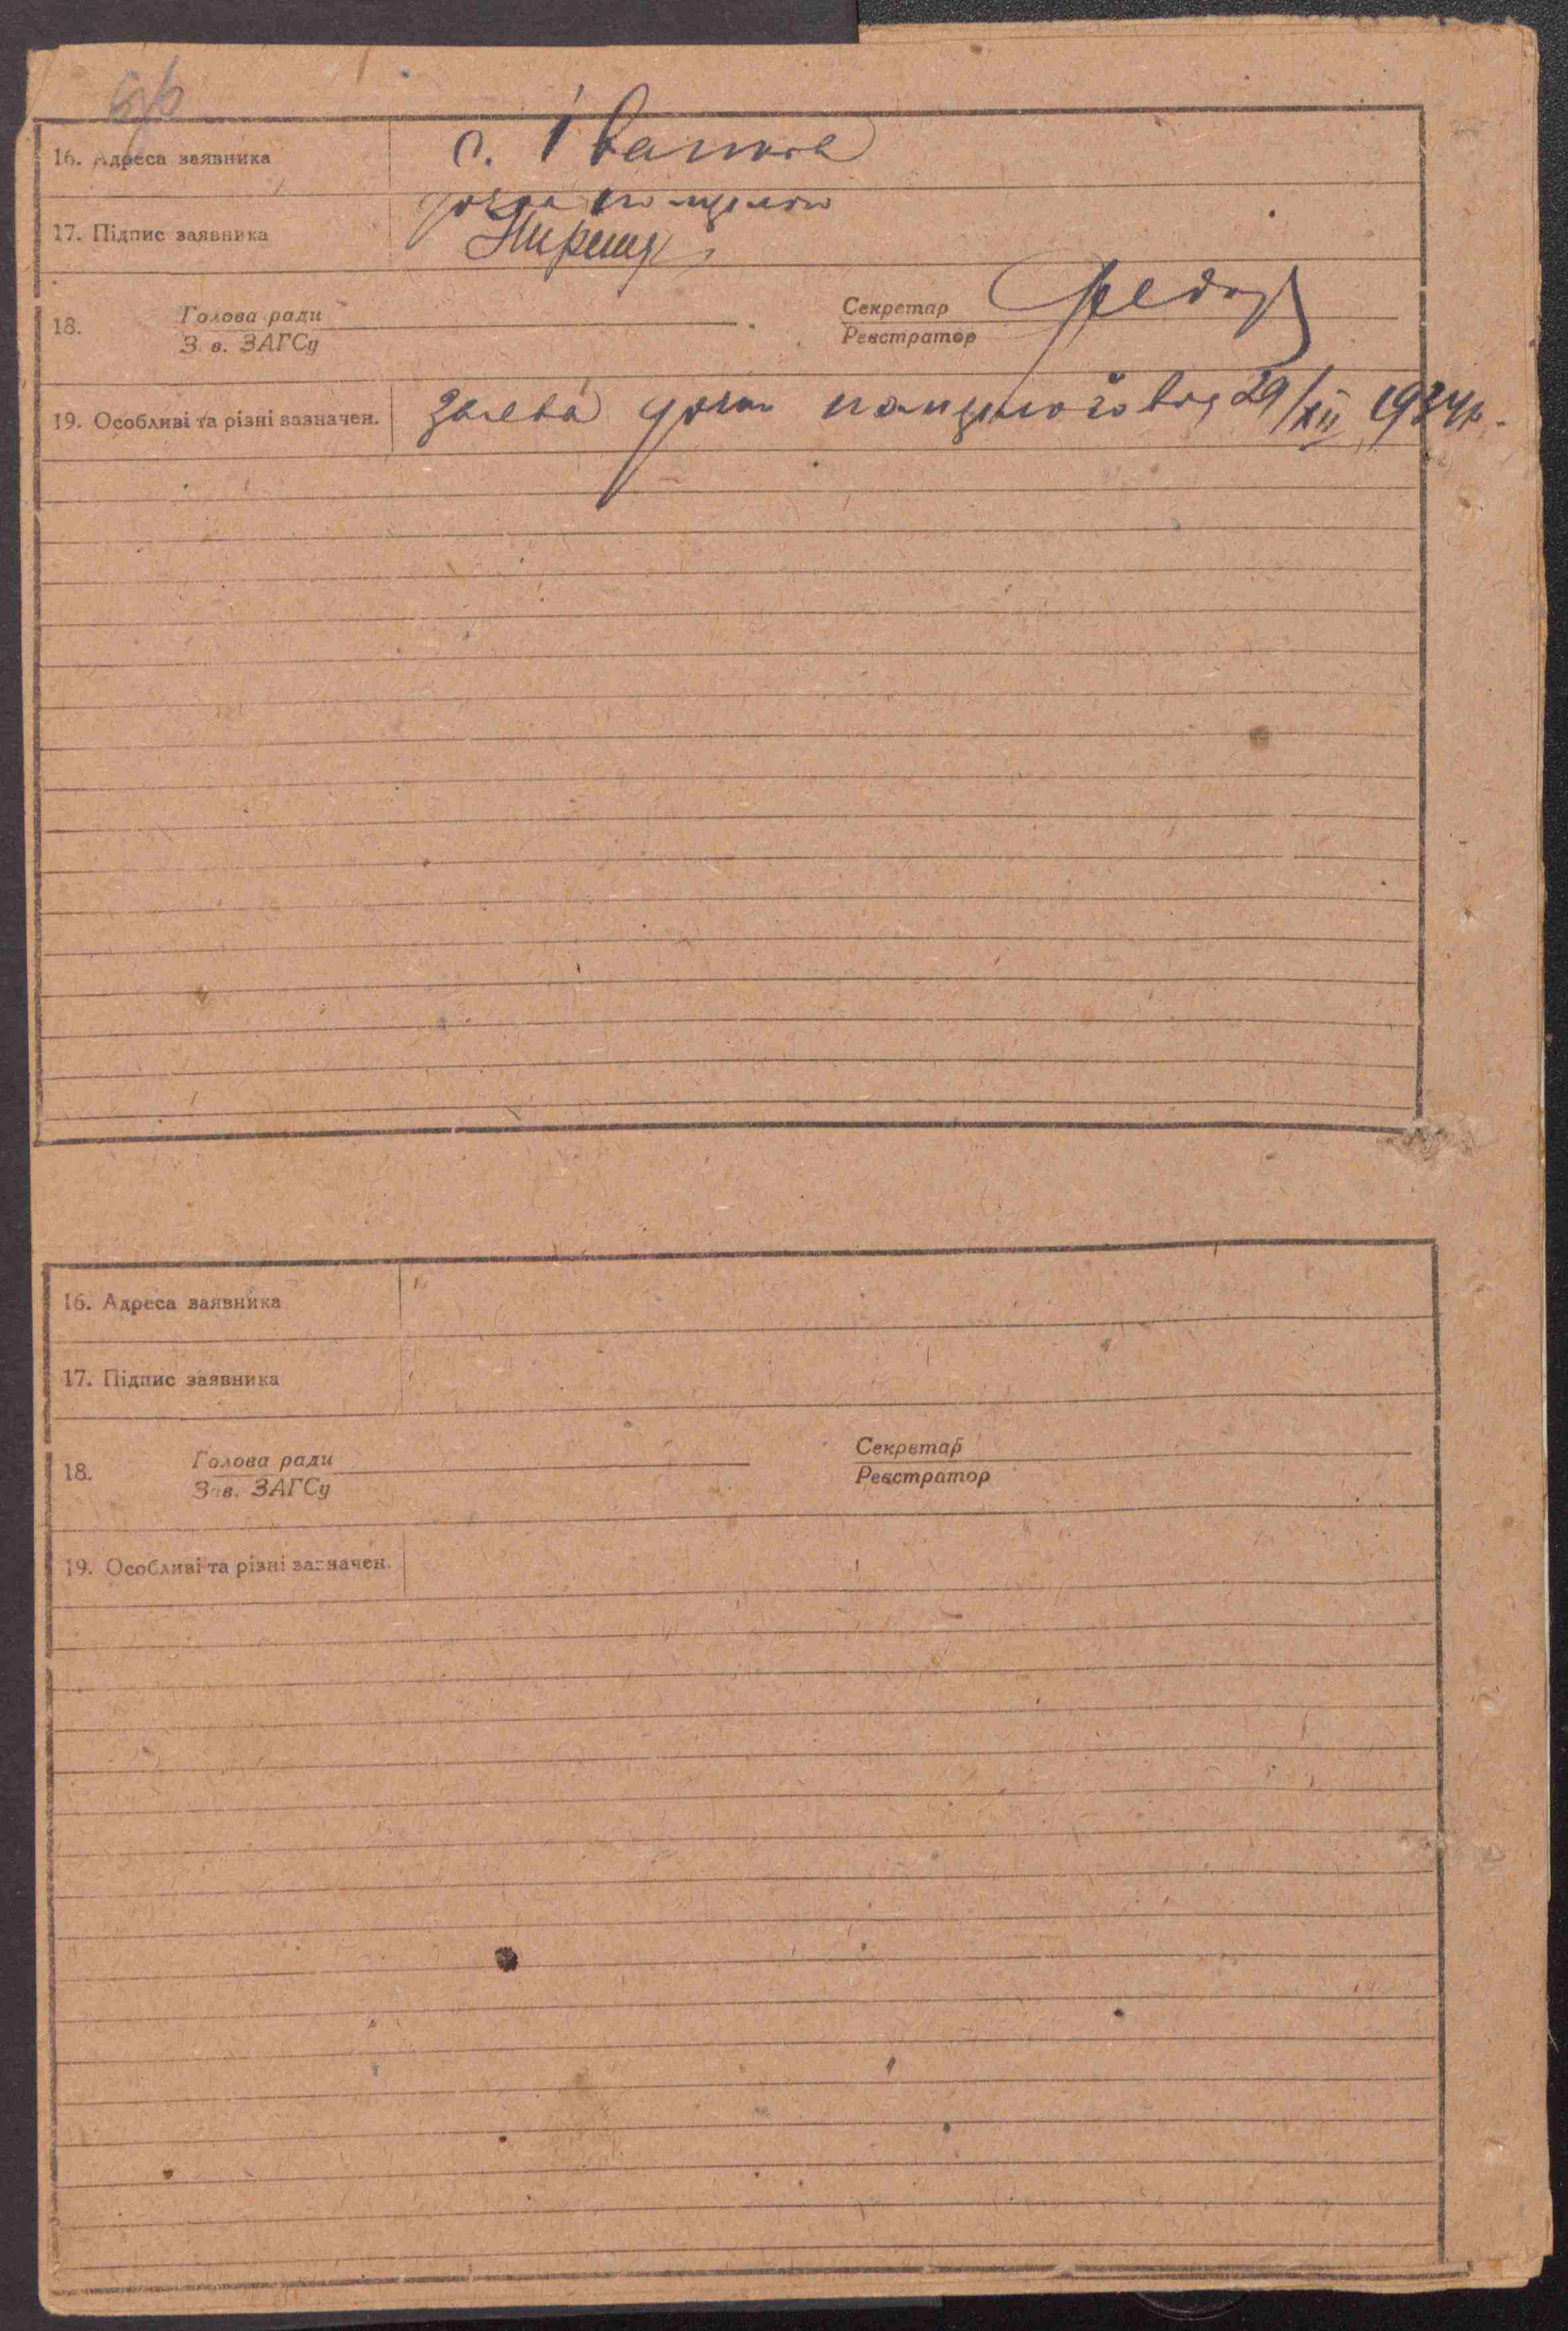 16. Адреса заявника с. Іванков
17. Підпис заявника
18. Голова ради Секретар
Зав. ЗАГСу Реєстратор
19. Особливі та різні зазначен. заева від 29/XII 1934р.
16. Адреса заявника
17. Підпис заявника
18. Голова ради Секретар
Зав. ЗАГСу Реєстратор
19. Особливі та різні зазначен.